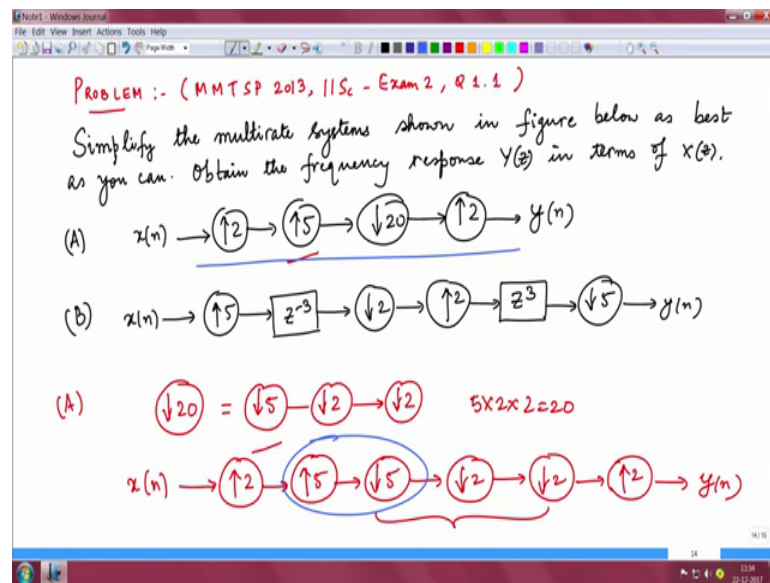 Note1 - Windows Journal
File Edit View Insert Actions Tools Help
Page Width
PROBLEM :- (MMTSP 2013, IISc - Exam 2, Q 1.1)
Simplify the multirate systems shown in figure below as best
as you can. Obtain the frequency response Y(z) in terms of X(z).
(A) x(n) → ↑2 → ↑5 → ↓20 → ↑2 → y(n)
(B) x(n) → ↑5 → z⁻³ → ↓2 → ↑2 → z³ → ↓5 → y(n)
(A) ↓20 = ↓5 — ↓2 → ↓2 5×2×2=20
x(n) → ↑2 → ↑5 → ↓5 → ↓2 → ↓2 → ↑2 → y(n)
14/15
14
11:34
22-12-2017